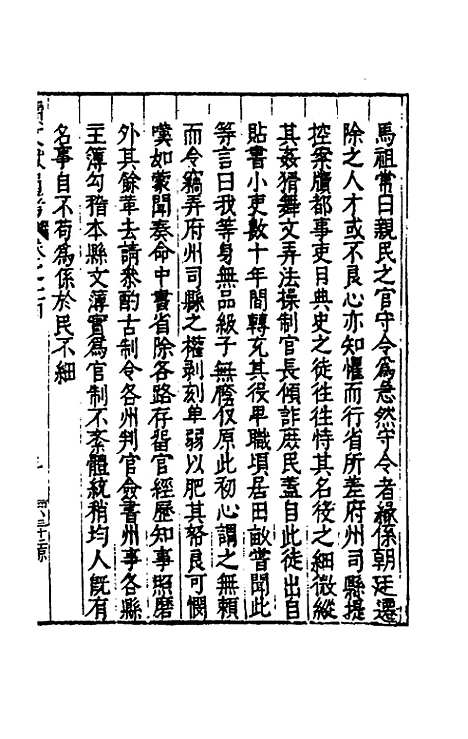 馬祖常曰親民之官守令爲急然守令者縁係朝廷遷
除之人才或不良心亦知懼而行省所差府州司縣提
控案牘都事吏目典史之徒徃徃恃其名役之細微縱
其姦猾舞文弄法操制官長傾詐庶民蓋自此徒出自
貼書小吏數十年間轉充其役卑職頃居田畝嘗聞此
等言曰我等身無品級子無廕仅原此初心謂之無賴
而令竊弄府州司縣之權剥刻单弱以肥其豁良可憫
嘆如蒙聞奏命中書省除各路存留官經歷知事照磨
外其餘革去請叅酌古制令各州判官僉書州事各縣
主簿勾稽本縣文簿實爲官制不紊體統稍均人旣有
名事自不苟爲係於民不細